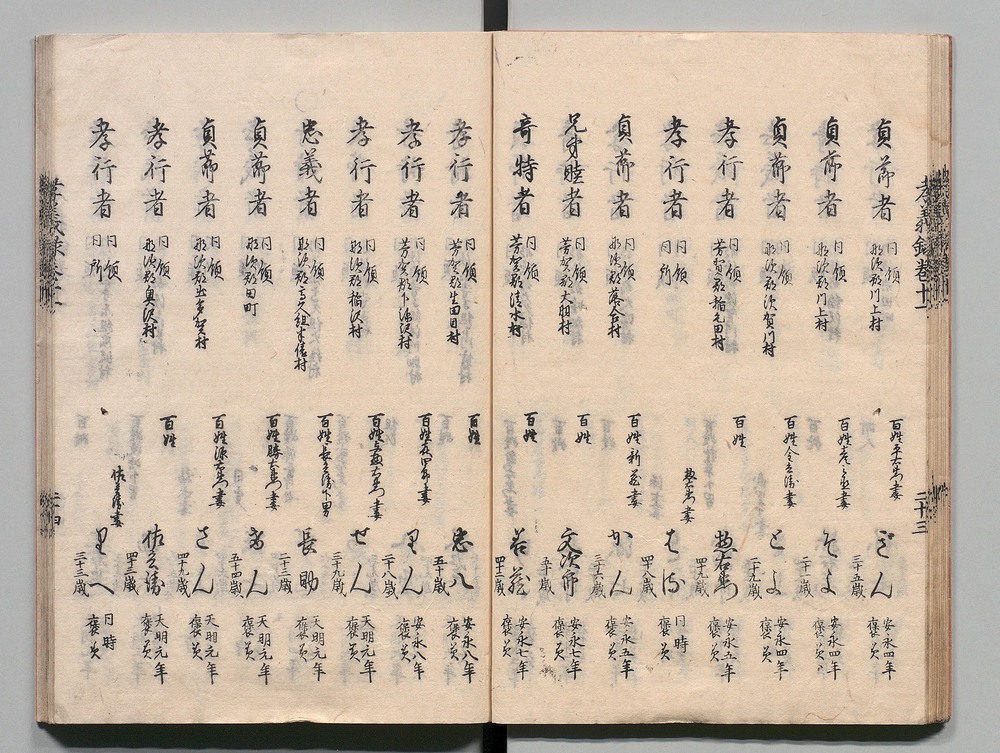 孝義録巻十一
貞節者 同領那須郡川上村 百姓平右衛門妻 ぎん 三十五歳 安永四年褒美
貞節者 同領那須郡川上村 百姓 妻 そよ 安永四年褒美
貞節者 同領那須郡須賀川村 百姓 妻 とよ 二十九歳 安永五年褒美
孝行者 同領芳賀郡稲毛田村 百姓 惣右衛門 四十九歳 安永五年褒美
孝行者 同領同所 惣右衛門妻 はる 四十八歳 同時褒美
貞節者 同領那須郡落合村 百姓新蔵妻 かん 三十六歳 安永五年褒美
兄弟睦者 同領芳賀郡大羽村 百姓 文次郎 五十歳 安永七年褒美
奇特者 同領芳賀郡清水村 百姓 岩蔵 安永七年褒美
二十三
孝行者 同領芳賀郡生田目村 百姓 忠八 五十歳 安永八年褒美
孝行者 同領芳賀郡 村 百姓 妻 りん 二十八歳 安永八年褒美
孝行者 同領那須郡稲沢村 百姓 右衛門妻 せん 三十九歳 天明元年褒美
忠義者 同領那須郡 村 百姓 下男 長助 二十三歳 天明元年褒美
貞節者 同領那須郡田町 百姓勝右衛門妻 ん 五十四歳 天明元年褒美
貞節者 同領那須郡 村 百姓源右衛門妻 さん 四十九歳 天明元年褒美
孝行者 同領那須郡奥沢村 百姓 佐兵衛 四十三歳 天明元年褒美
孝行者 同領同所 佐兵衛妻 りへ 三十三歳 同時褒美
孝義録巻十一
二十四